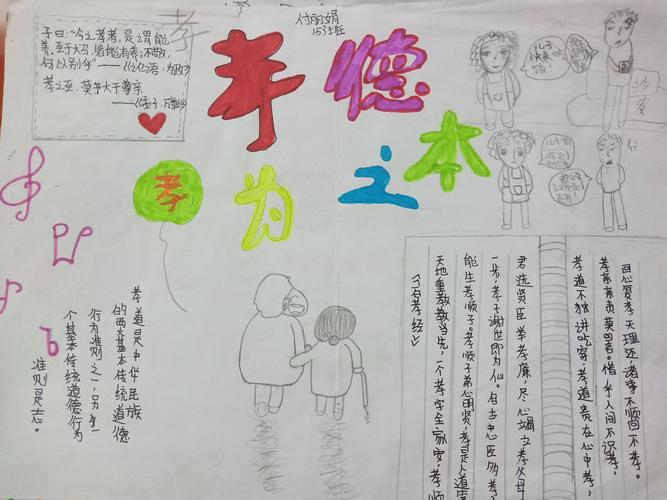 付丽娟
153班
子曰:“今之孝者,是谓能
养,至于犬马,皆能有养;不敬,
何以别乎”——《论语·为政》
孝之至,莫大于尊亲
——《孟子·万章》
孝
孝 德
孝 为 之 本
儿子
快来
吃饭
沙发
孝道是中华民族
的两大基本传统道德
行为准则之一,另一
个基本传统道德行为
准则是忠。
回心复孝天理还,诸事不顺因不孝。
孝亲亲责莫回言。惜乎人间不识孝,
孝道不独讲吃穿,孝道贵在心中孝
君选贤臣举孝廉,尽心竭立孝父母
一步,孝子谢世即为仙。自古中臣多孝子
能生孝顺子。孝顺子弟心明贤,孝是人道第
天地重教孝当先,一个孝字全家安,孝顺
《百孝经》